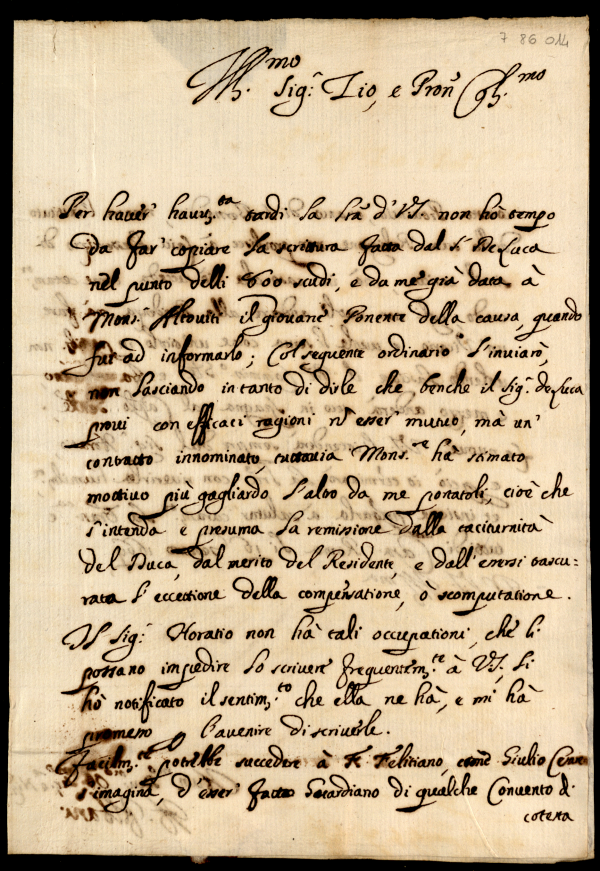 7 86 014
Ill.mo
Sig.r Zio, e Pron Col.mo
Per haver havu.ta tardi la lra d'VS. non ho tempo
da far copiare la scrittura fatta dal S.r De Luca
nel punto delli 600 scudi, e da me già data à
Mons.r Altoviti il giovane Ponente della causa, quando
fui ad informarlo; Col seguente ordinario l'inviarò,
non lasciando in tanto di dirle che benche il Sig.r de Luca
provi con efficaci ragioni n esser mutuo, mà un
contratto innominato, tuttavia Mons.re hà stimato
mottivo più gagliardo l'altro da me portatoli, cioè che
s'intenda e presuma la remissione dalla taciturnità
del Duca, dal merito del Residente, e dall'essersi trascu-
rata l'eccettione della compensatione, ò scomputatione.
Il Sig.r Horatio non hà tali occupationi, che li
possano impedire lo scrivere frequentem.te à VS. Li
hò notificato il sentim.to che ella ne hà, e mi hà
promesso l'avenire di scriverle.
Facilm.te potrebbe succedere à Fr. Felitiano, come Giulio
s'imagina, d'esser fatto Guardiano di qualche Convento di
cotesta